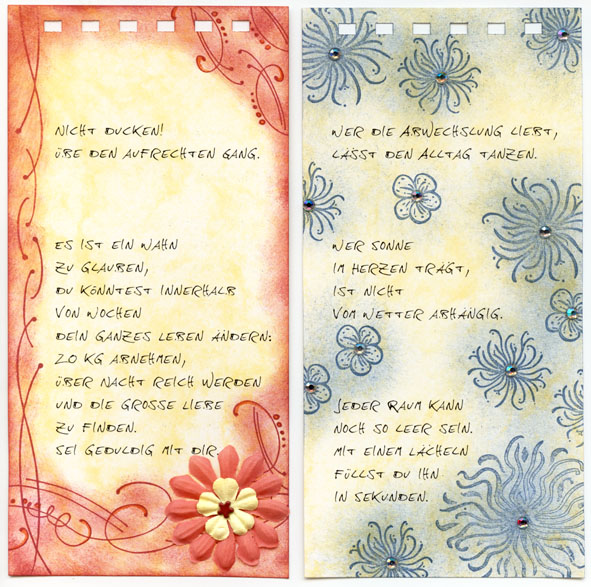 NICHT DUCKEN!
ÜBE DEN AUFRECHTEN GANG.
ES IST EIN WAHN
ZU GLAUBEN,
DU KÖNNTEST INNERHALB
VON WOCHEN
DEIN GANZES LEBEN ÄNDERN:
20 KG ABNEHMEN,
ÜBER NACHT REICH WERDEN
UND DIE GROSSE LIEBE
ZU FINDEN.
SEI GEDULDIG MIT DIR.
WER DIE ABWECHSLUNG LIEBT,
LÄSST DEN ALLTAG TANZEN.
WER SONNE
IM HERZEN TRÄGT,
IST NICHT
VOM WETTER ABHÄNGIG.
JEDER RAUM KANN
NOCH SO LEER SEIN.
MIT EINEM LÄCHELN
FÜLLST DU IHN
IN SEKUNDEN.